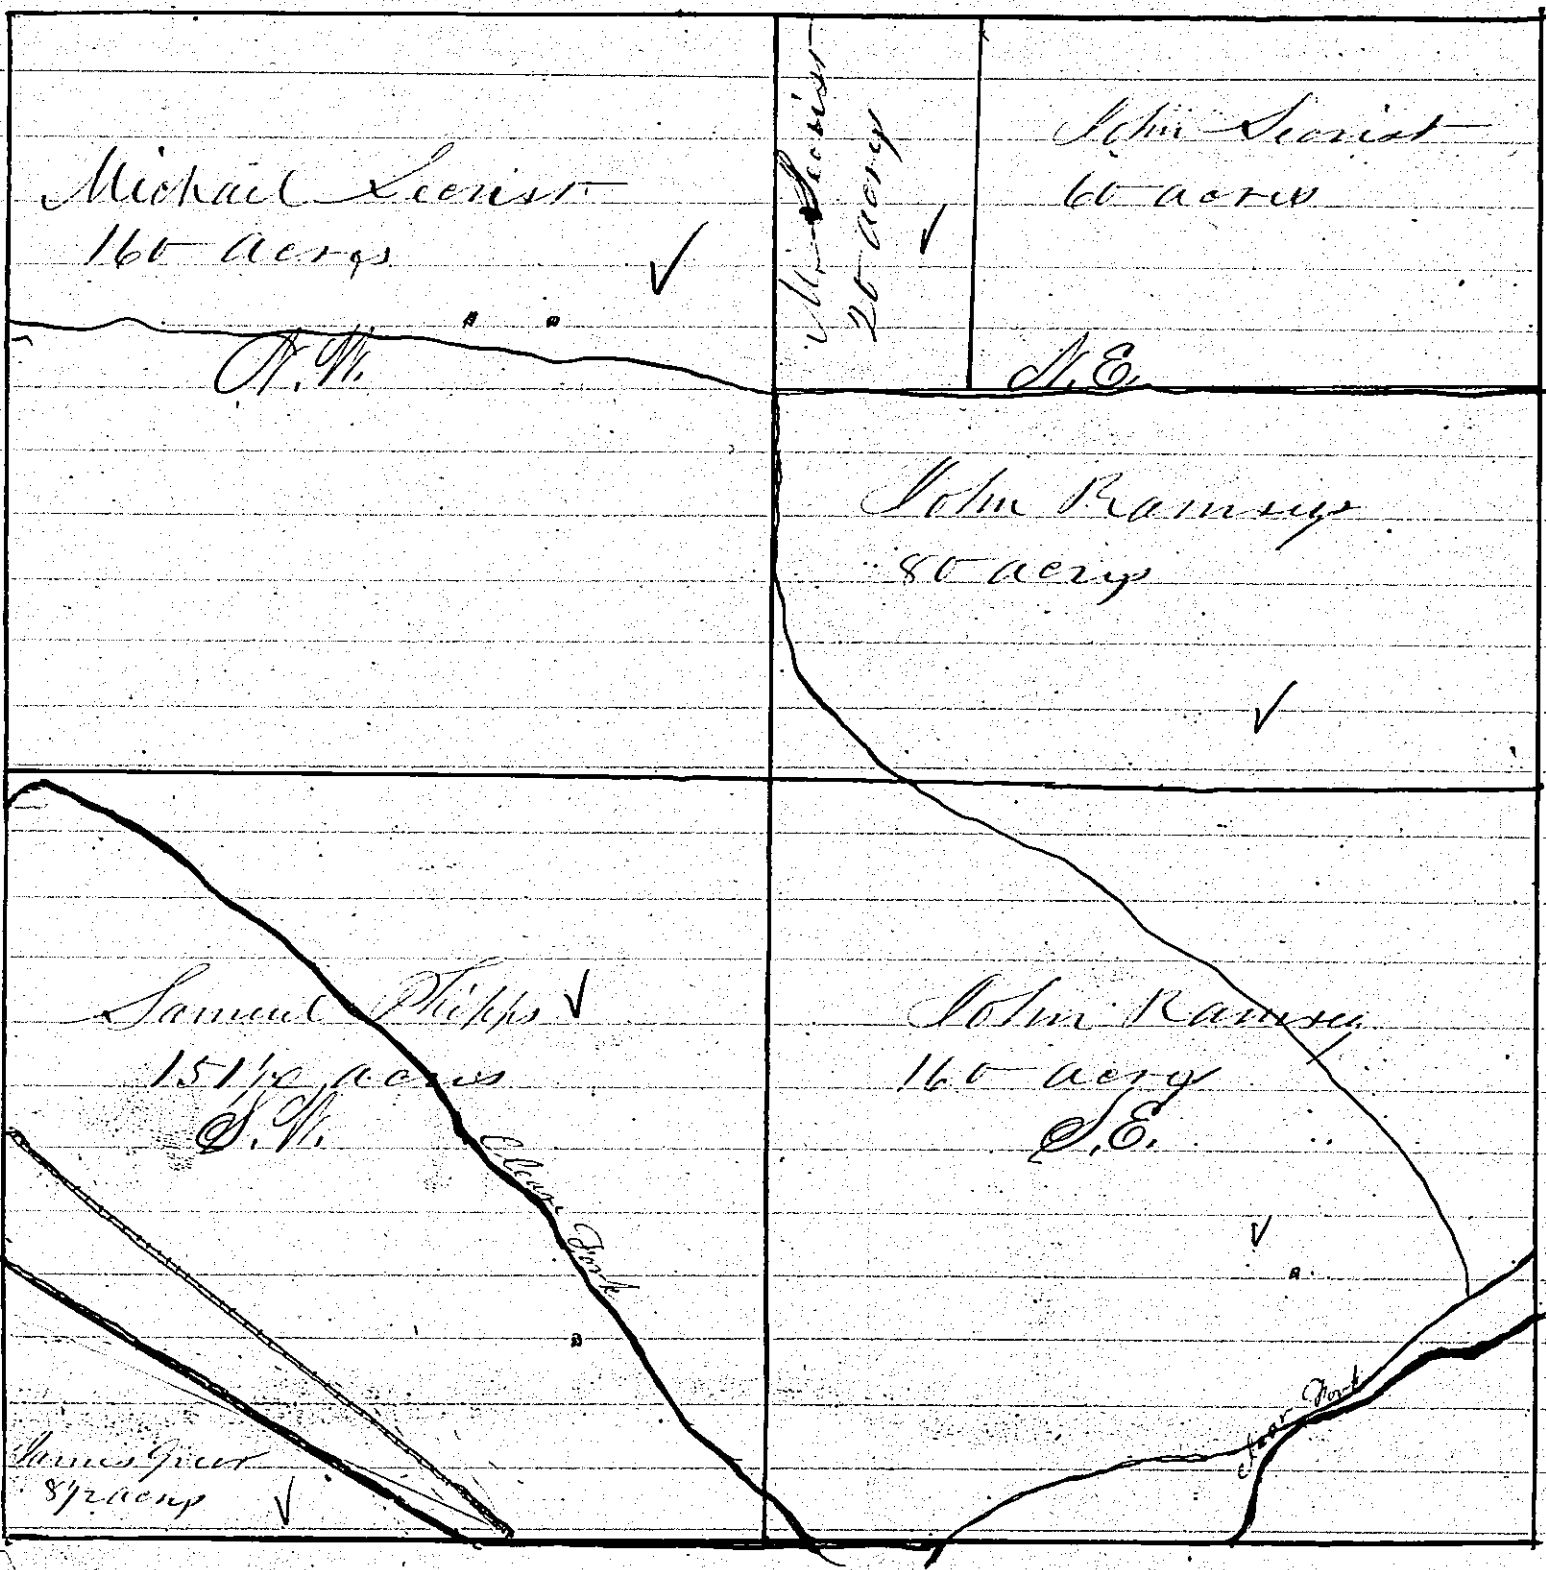 Michael Secrist
160 acres
N.W.
M. Secrist
20 acres
John Secrist
60 acres
N.E.
John Ramsey
80 acres
Samuel Phipps
151 1/2 acres
S.W.
Clear Fork
John Ramsey
160 acres
S.E.
Clear Fork
James Greer
8 1/2 acres